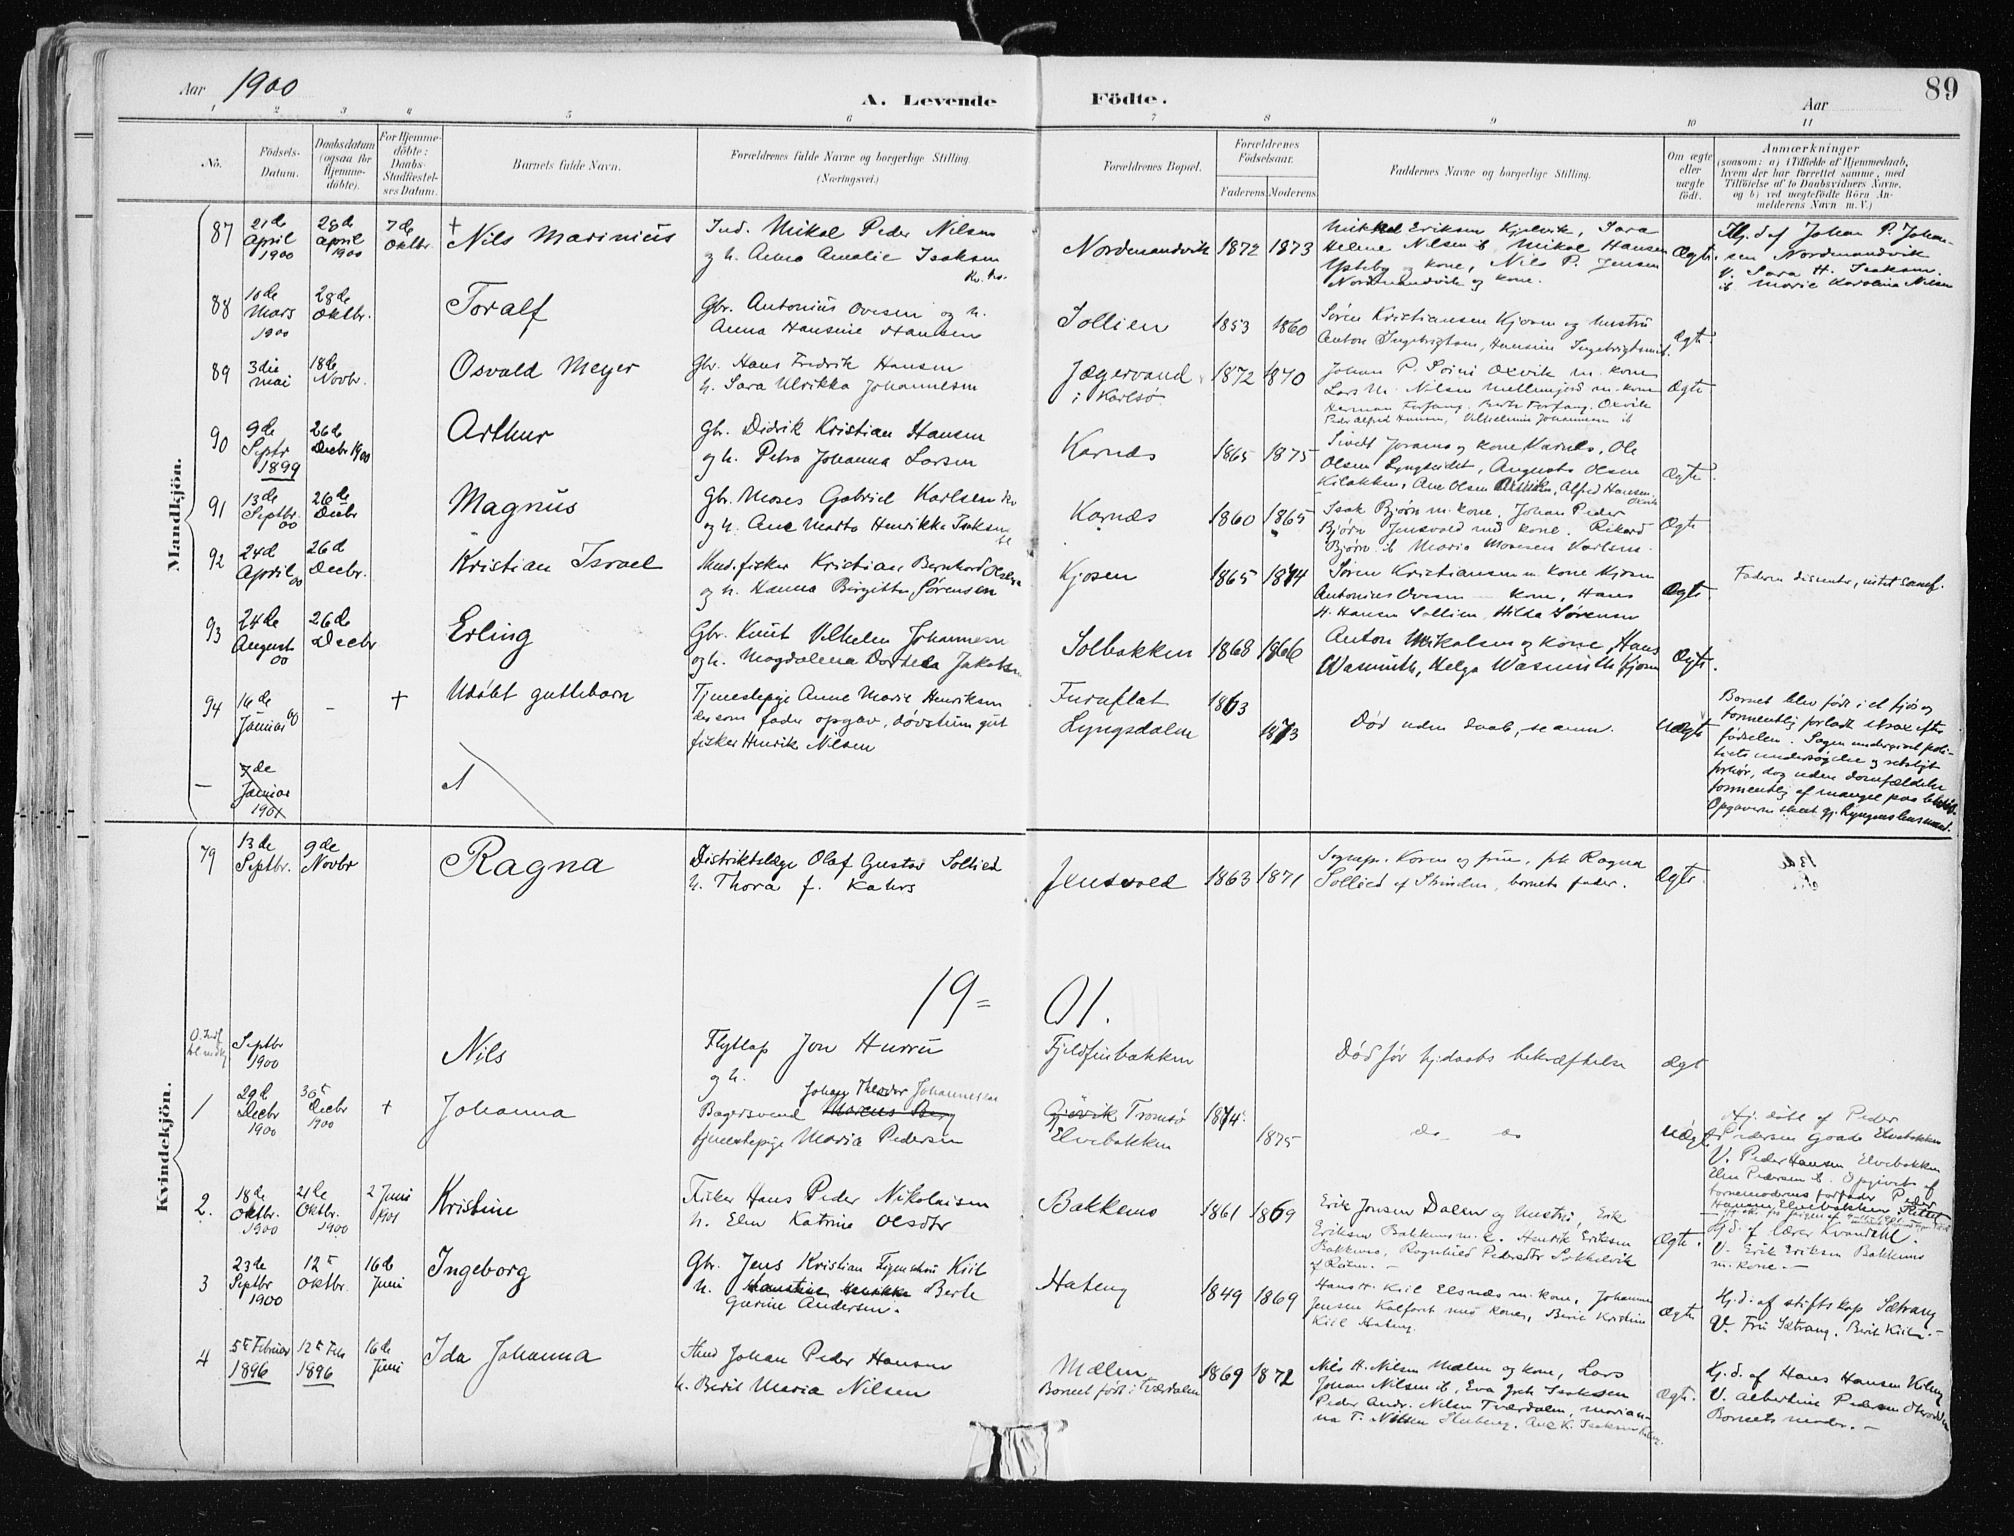 Aar 1900
A. Levende Födte.
Aar
89
1 2 3 4 5 6 7 8 9 10 11
No.
Födsels-Datum.
Daabsdatum (ogsaa for Hjemme-döbte).
For Hjemme-döbte: Daabs-Stadfæstel-ses Datum.
Barnets fulde Navn.
Forældrenes fulde Navne og borgerlige Stilling.
(Næringsvei.)
Forældrenes Bopæl.
Forældrenes Födselsaar.
Faderens Moderens
Faddernes Navne og borgerlige Stilling.
Om ægte eller uægte födt.
Anmærkninger
(saasom: a) i Tilfælde af Hjemmedaab,
hvem der har forrettet samme, med
Tilföielse af to Daabsvidners Navne.
og b) ved uægtefödte Börn An-
melderens Navn m. V.)
Mandkjön.
87 21de April 1900 28de April 1900 7de Oktbr. + Nils Marinius
Ind. Mikal Peder Nilsen
og h. Anna Amalie Isaksen
Nordmandvik 1872 1873
Mikkel Eriksen Kjelvik, Sara
Helene Nilsen ib, Mikal Hansen
Ysteby og kone, Nils P. Jensen
Nordmandvik og kone.
Ægte.
Hj. d. af Johan P. Johan-
sen Nordmandvik
V. Sara H. Isaksen
ib. Marie Karolina Nilsen
88 10de Mars 1900 28de Oktbr. Toralf
Gbr. Antonius Ovesen og h.
Anna Hansine Hansen
Sollien 1853 1860
Søren Kristiansen Kjosen og hustru
Anton Ingebrigtsen, Hansine Ingebrigtsen ib.
Ægte
89 3die mai 18de Novbr. Osvald Meyer
Gbr. Hans Fredrik Hansen
h. Sara Ulrikka Johannesen
Jægervand i Karlsö 1872 1870
Johan P. Soini Oxvik m. kone
Lars M. Nilsen Mellemjord m. kone
Herman Forfang, Berte Forfang, Oxvik
Peder Alfred Hansen, Vilhelmine Johannesen ib
Ægte
90 9de Septr 1899 26de Decbr 1900 Arthur
Gbr. Didrik Kristian Hansen
og h. Petra Johanna Larsen
Karnæs 1865 1875
Sivert Jorams og kone Karnæs, Ole
Olsen Lyngseidet, Augusta Olsen
Kilbakken, Ane Olsen, Alfred Hansen
Oxvik
Ægte
91 13de Septbr. 00 26de Decbr Magnus
Gbr. Moses Gabriel Karlsen
og h. Ane Marta Henrikke Isaksen
Karnæs 1860 1865
Isak Bjørn m. kone, Johan Peder
Bjørn Jensvold med kone. Rikard
Bjørn ib Maria Mosesen Karlsen.
Ægte
92 24d April 00 26d Decbr. Kristian Israel
Ind. fisker Kristian Bernhard Olsen
og h. Hanna Birgitte Sørensen
Kjosen 1865 1874
Søren Kristiansen m. kone Kjosen
Antonius Ovesen — kone, Hans
H. Hansen Sollien, Hilda Sørensen
Ægte
Faderen dissenter, intet samf.
93 24de August 00 26de Decbr Erling
Gbr. Knut Vilhelm Johannesen
og h. Magdalena Dorthea Jakobsen
Solbakken 1868 1866
Anton Mikalsen og kone, Hans
Wasmuth, Helga Wasmuth Kjosen
Ægte.
94 16de Januar 00 – + Udöbt guttebarn
Tjenestepige Anne Marie Henriksen
der som fader opgav, døvstum gut
fisker Henrik Nilsen
Furuflat
Lyngsdalen 1863 1873
Død uden daab, se anm.
Uægte
Barnet blev født i et fjøs og
formentlig forladt strax efter
fødselen. Sagen undergivet poli-
tiets undersøgelse og retsligt
forhør, dog uden domfældelse
formentlig af mangel paa bevis.
Opgaven skeet gj. Lyngens lensmand.
– 7de Januar 1901
Kvindekjön.
79 13de Septbr. 9de Novbr Ragna
Distriktslæge Olaf Gustav Sollied
h. Thora f. Kahrs
Jensvold 1863 1871
Sognep. Koren og frue, frk Ragna
Sollied af Strinden, barnets fader.
Ægte.
19= 01.
Septbr 1900 Nils
Flytlap Jon Hurru
og h.
Fjeldfinbakken
Død før hj.daabs bekræftelse
ægt
1 29d Decbr 1900 30te Decbr 1900 + Johanna
Johan Theodor Johannesen
Bagersvend Marcus Berg
tjenestepige Maria Pedersen
Gjøvik Tromsö 1874.
Elvebakken 1875
do — do
Uægte
Hj. döbt af Peder
Pedersen Goada Elvebakken
V. Peder Hansen Elvebakken
Elen Pedersen ib. Opgivet af
barnemoderens forfader Peder
Hansen Elvebakken
2. 18de Oktbr. 1900 21de Oktbr. 1900 2 Juni 1901 Kristine
Fisker Hans Peder Nikolaisen
h. Elen Katrine Olsdtr
Bakkemo 1861 1869
Erik Jonsen Dalen og hustru, Erik
Eriksen Bakkemo m. k. Henrik Eriksen
Bakkemo, Ragnhild Pedersdtr Sokkelvik
af Rotsn. –
Ægte.
Hj. d. af lærer Kvandahl.
V. Erik Eriksen Bakkemo
m. kone. –
3 23de Septbr 1900 12te Oktbr. 16de Juni Ingeborg
Gbr. Jens Kristian Figenschou Kiil
h. Berte
Gurine Andersen.
Hateng 1849 1869
Hans H. Kiil Elsnæs m. kone, Johannes
Jensen Kalfont med kone, Berit Kristine
Kiil Hateng.
Ægte
Hj. d. af stiftskap. Sætrang
V. Fru Sætrang, Berit Kiil. –
4 5te Februar 1896 12te Feb 1896 16de Juni Ida Johanna
Ind Johan Peder Hansen
h. Berit Maria Nilsen
Mælen 1869 1872
Barnet født i Tverdalen
Nils H. Nilsen Mælen og kone, Lars
Johan Nilsen ib, Eva Isaksen
Peder Andr. Nilsen Tverdalen, Marian-
na T. Nilsen Stubeng, Ane K. Isaksen
Ægte.
Hj. d. af Hans Hansen Kileng
V. Albertine Pedersen
Barnets moder. –